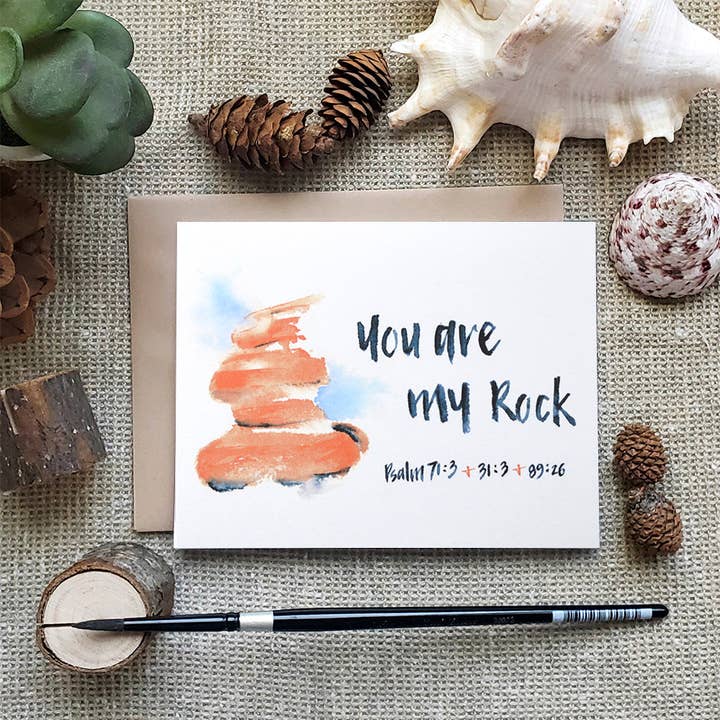 You are
my Rock
Psalm 71:3 + 31:3 + 89:26